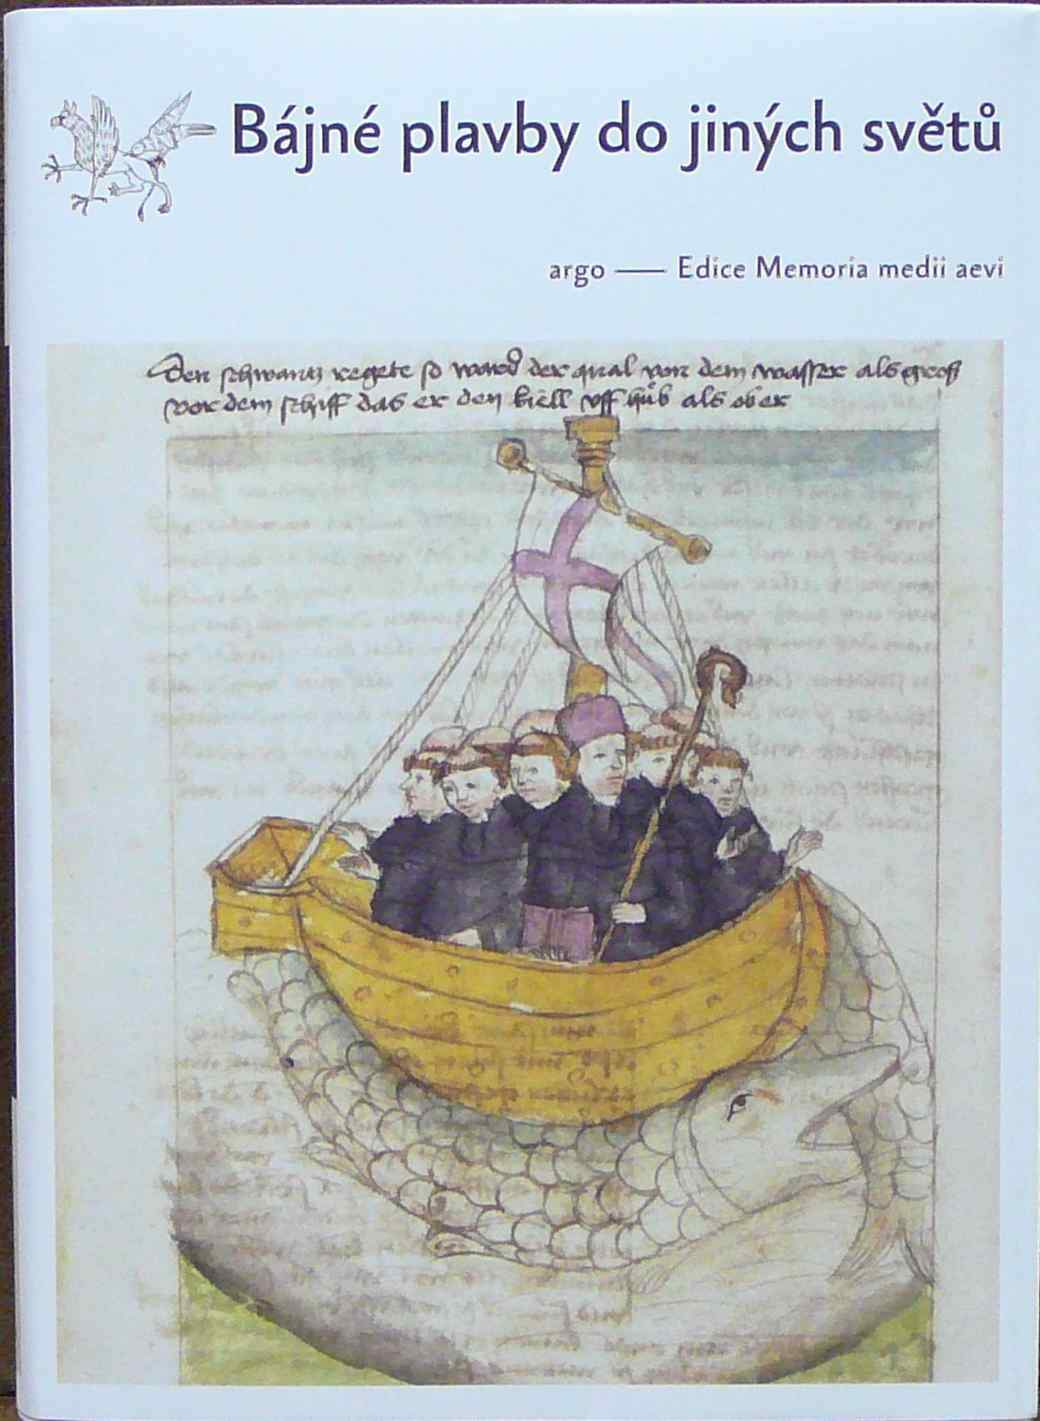 Bájné plavby do jiných světů
argo — Edice Memoria medii aevi
Den schwantz regete so ward der qual von dem wasser als groß
vor dem schiff das er den kiell uff hůb als ober